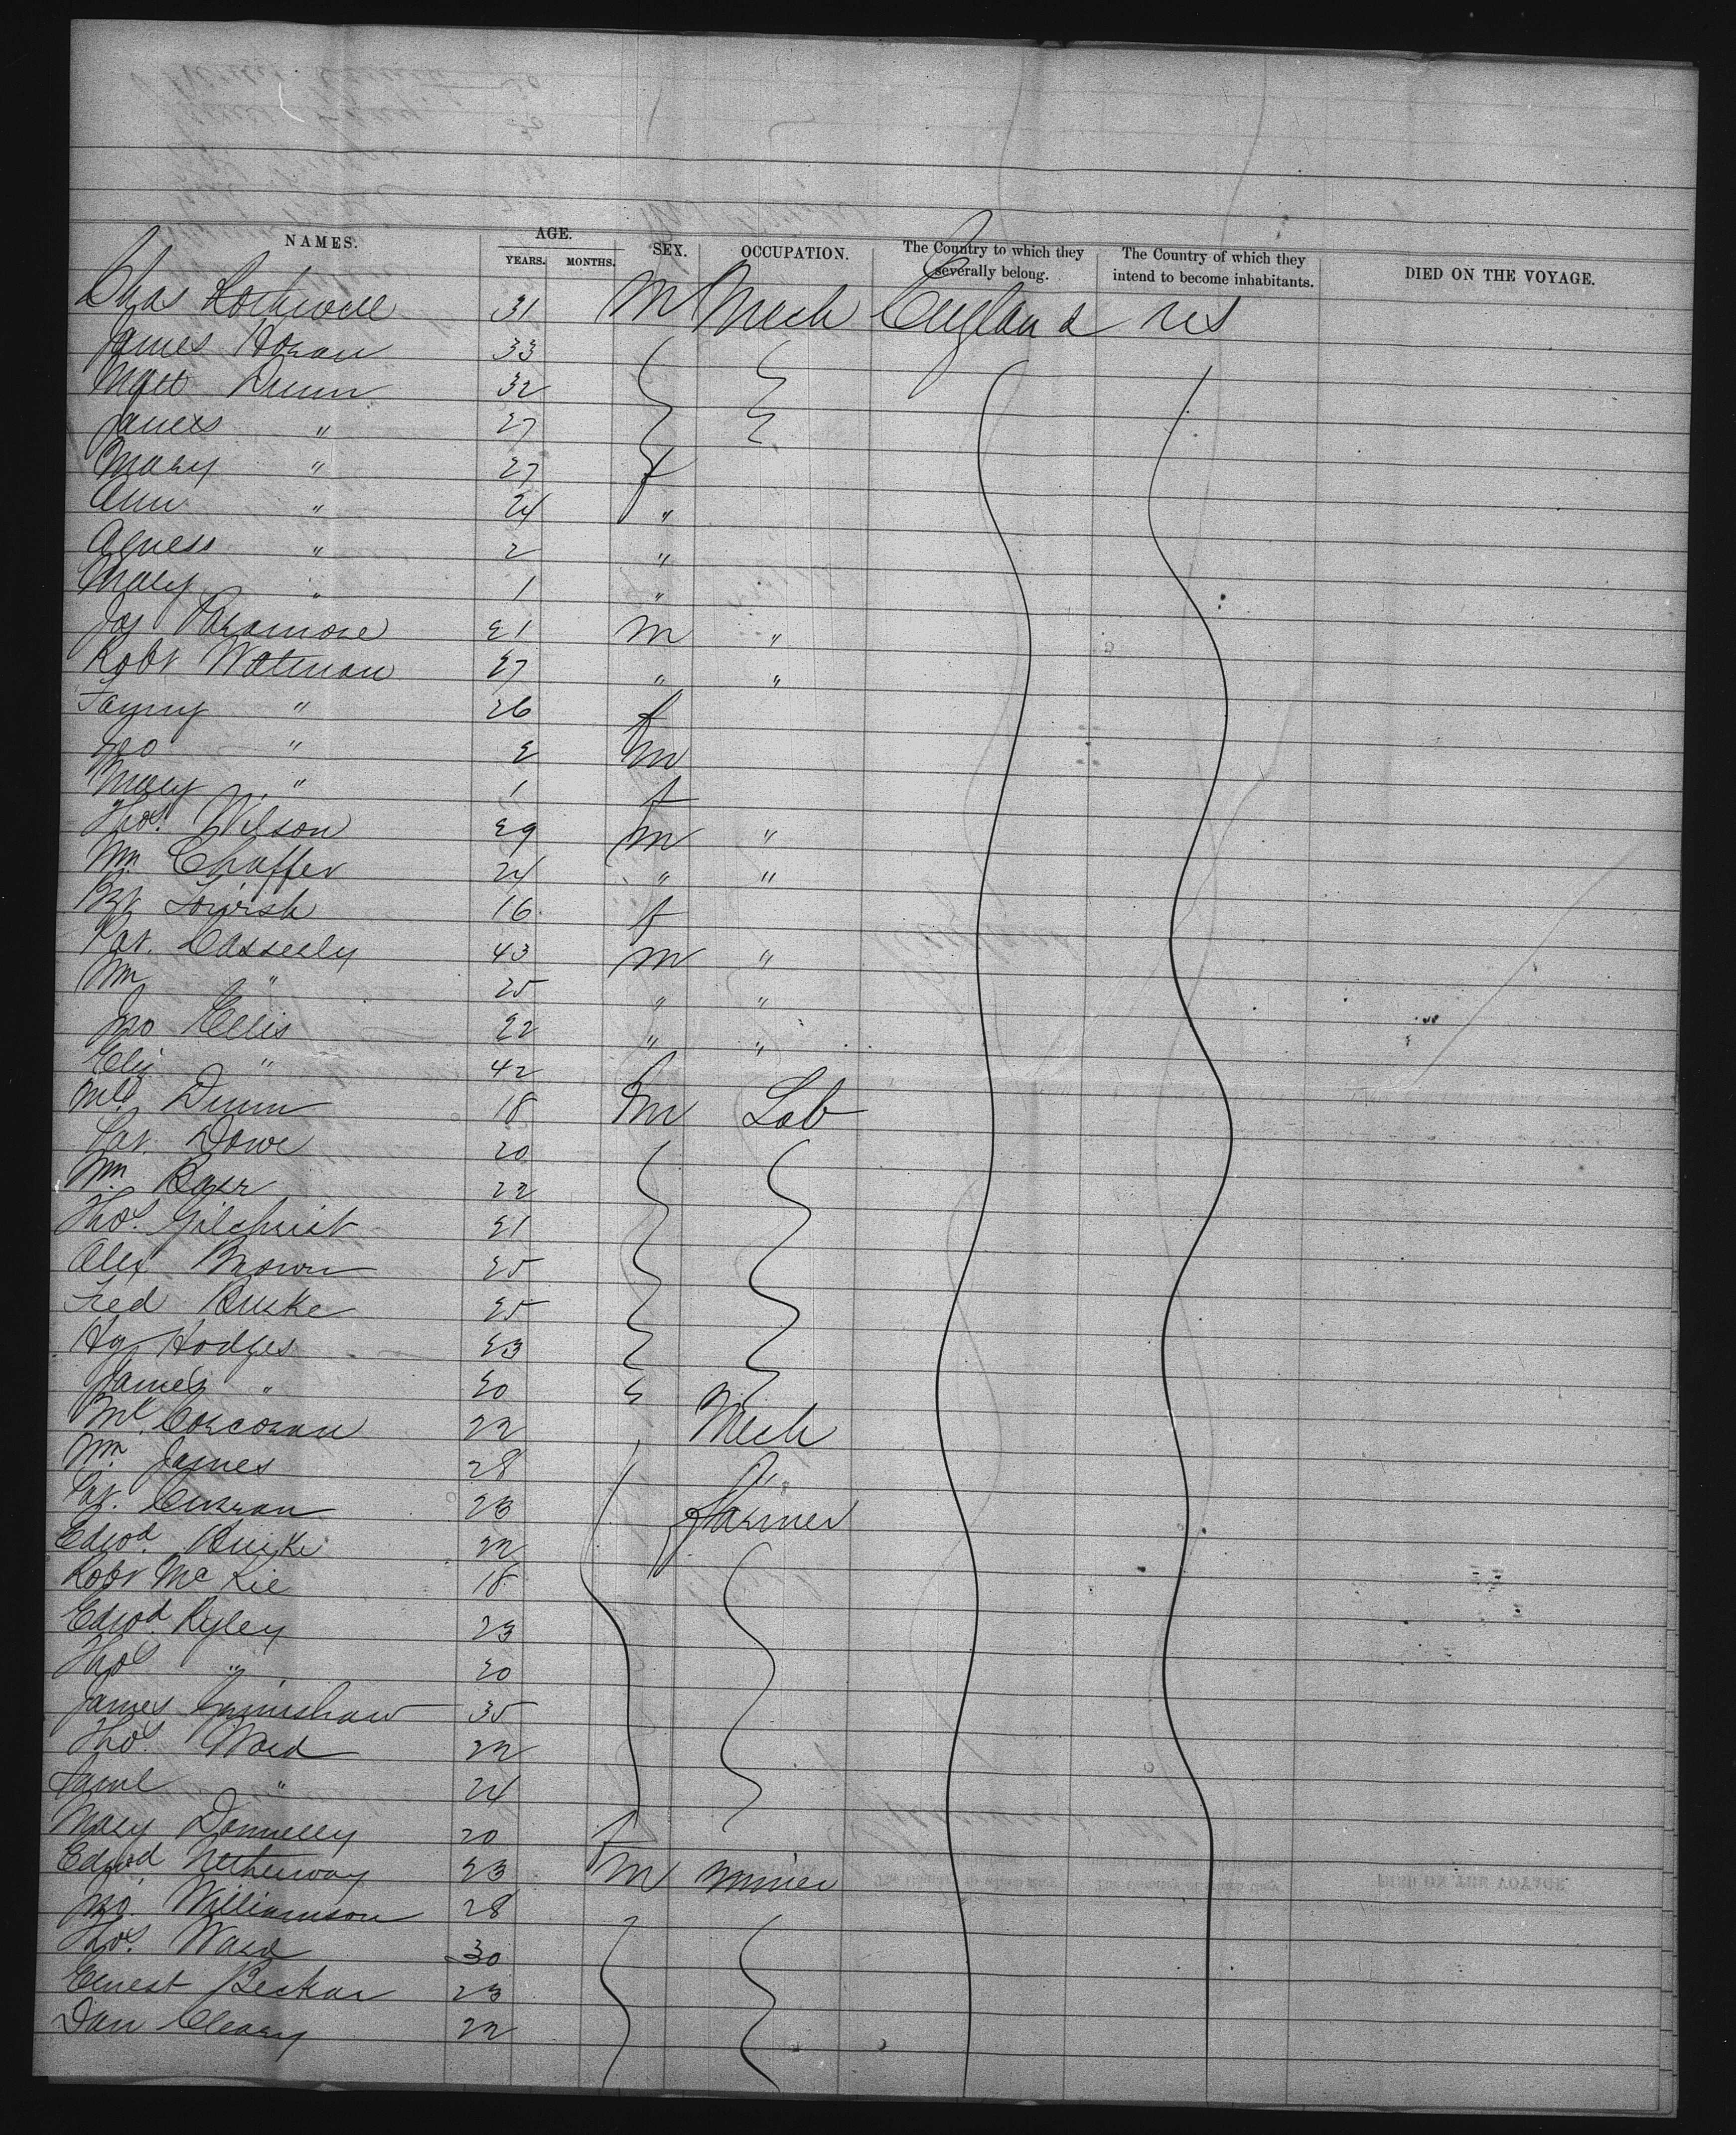 NAMES. AGE. SEX. OCCUPATION. The Country to which they severally belong. The Country of which they intend to become inhabitants. DIED ON THE VOYAGE.
YEARS. MONTHS.
Chas Rothwell 31 M Mech England US
James Horan 33
Matt Dunn 32
James " 27
Mary " 27 f
Ann " 24 "
Agness " 2 "
Mary " 1 "
Jas Paramore 21 m "
Robt Watman 27 " "
Fanny " 26 f
Jno " 2 m
Mary " 1 f
Thos. Wilson 29 m "
Wm. Chaffer 24 " "
16 f
Pat. Casselly 43 m "
Wm " 25 " "
Jno Ellis 22 " "
Eliz " 42 f
Ml. Dunn 18 m Lab
Pat. Dowe 20
Wm. Barr 22
Thos. Gilchrist 21
Alex Brown 25
Fred Burke 25
Hy Hodges 23
James " 20
Ml. Corcoran 22 Mech
Wm. James 28 "
Pat. Curran 23 Farmer
Edwd. Burke 22
Robt McKie 18
Edwd. Ryley 23
Thos " 20
James Grimshaw 35
Thos. Ward 22
Saml " 24
Mary Donnelly 20 f
Edwd. Netherway 23 m Miner
Jno. Williamson 28
Thos. Ward 30
Ernest Beckar 23
Dan Cleary 22